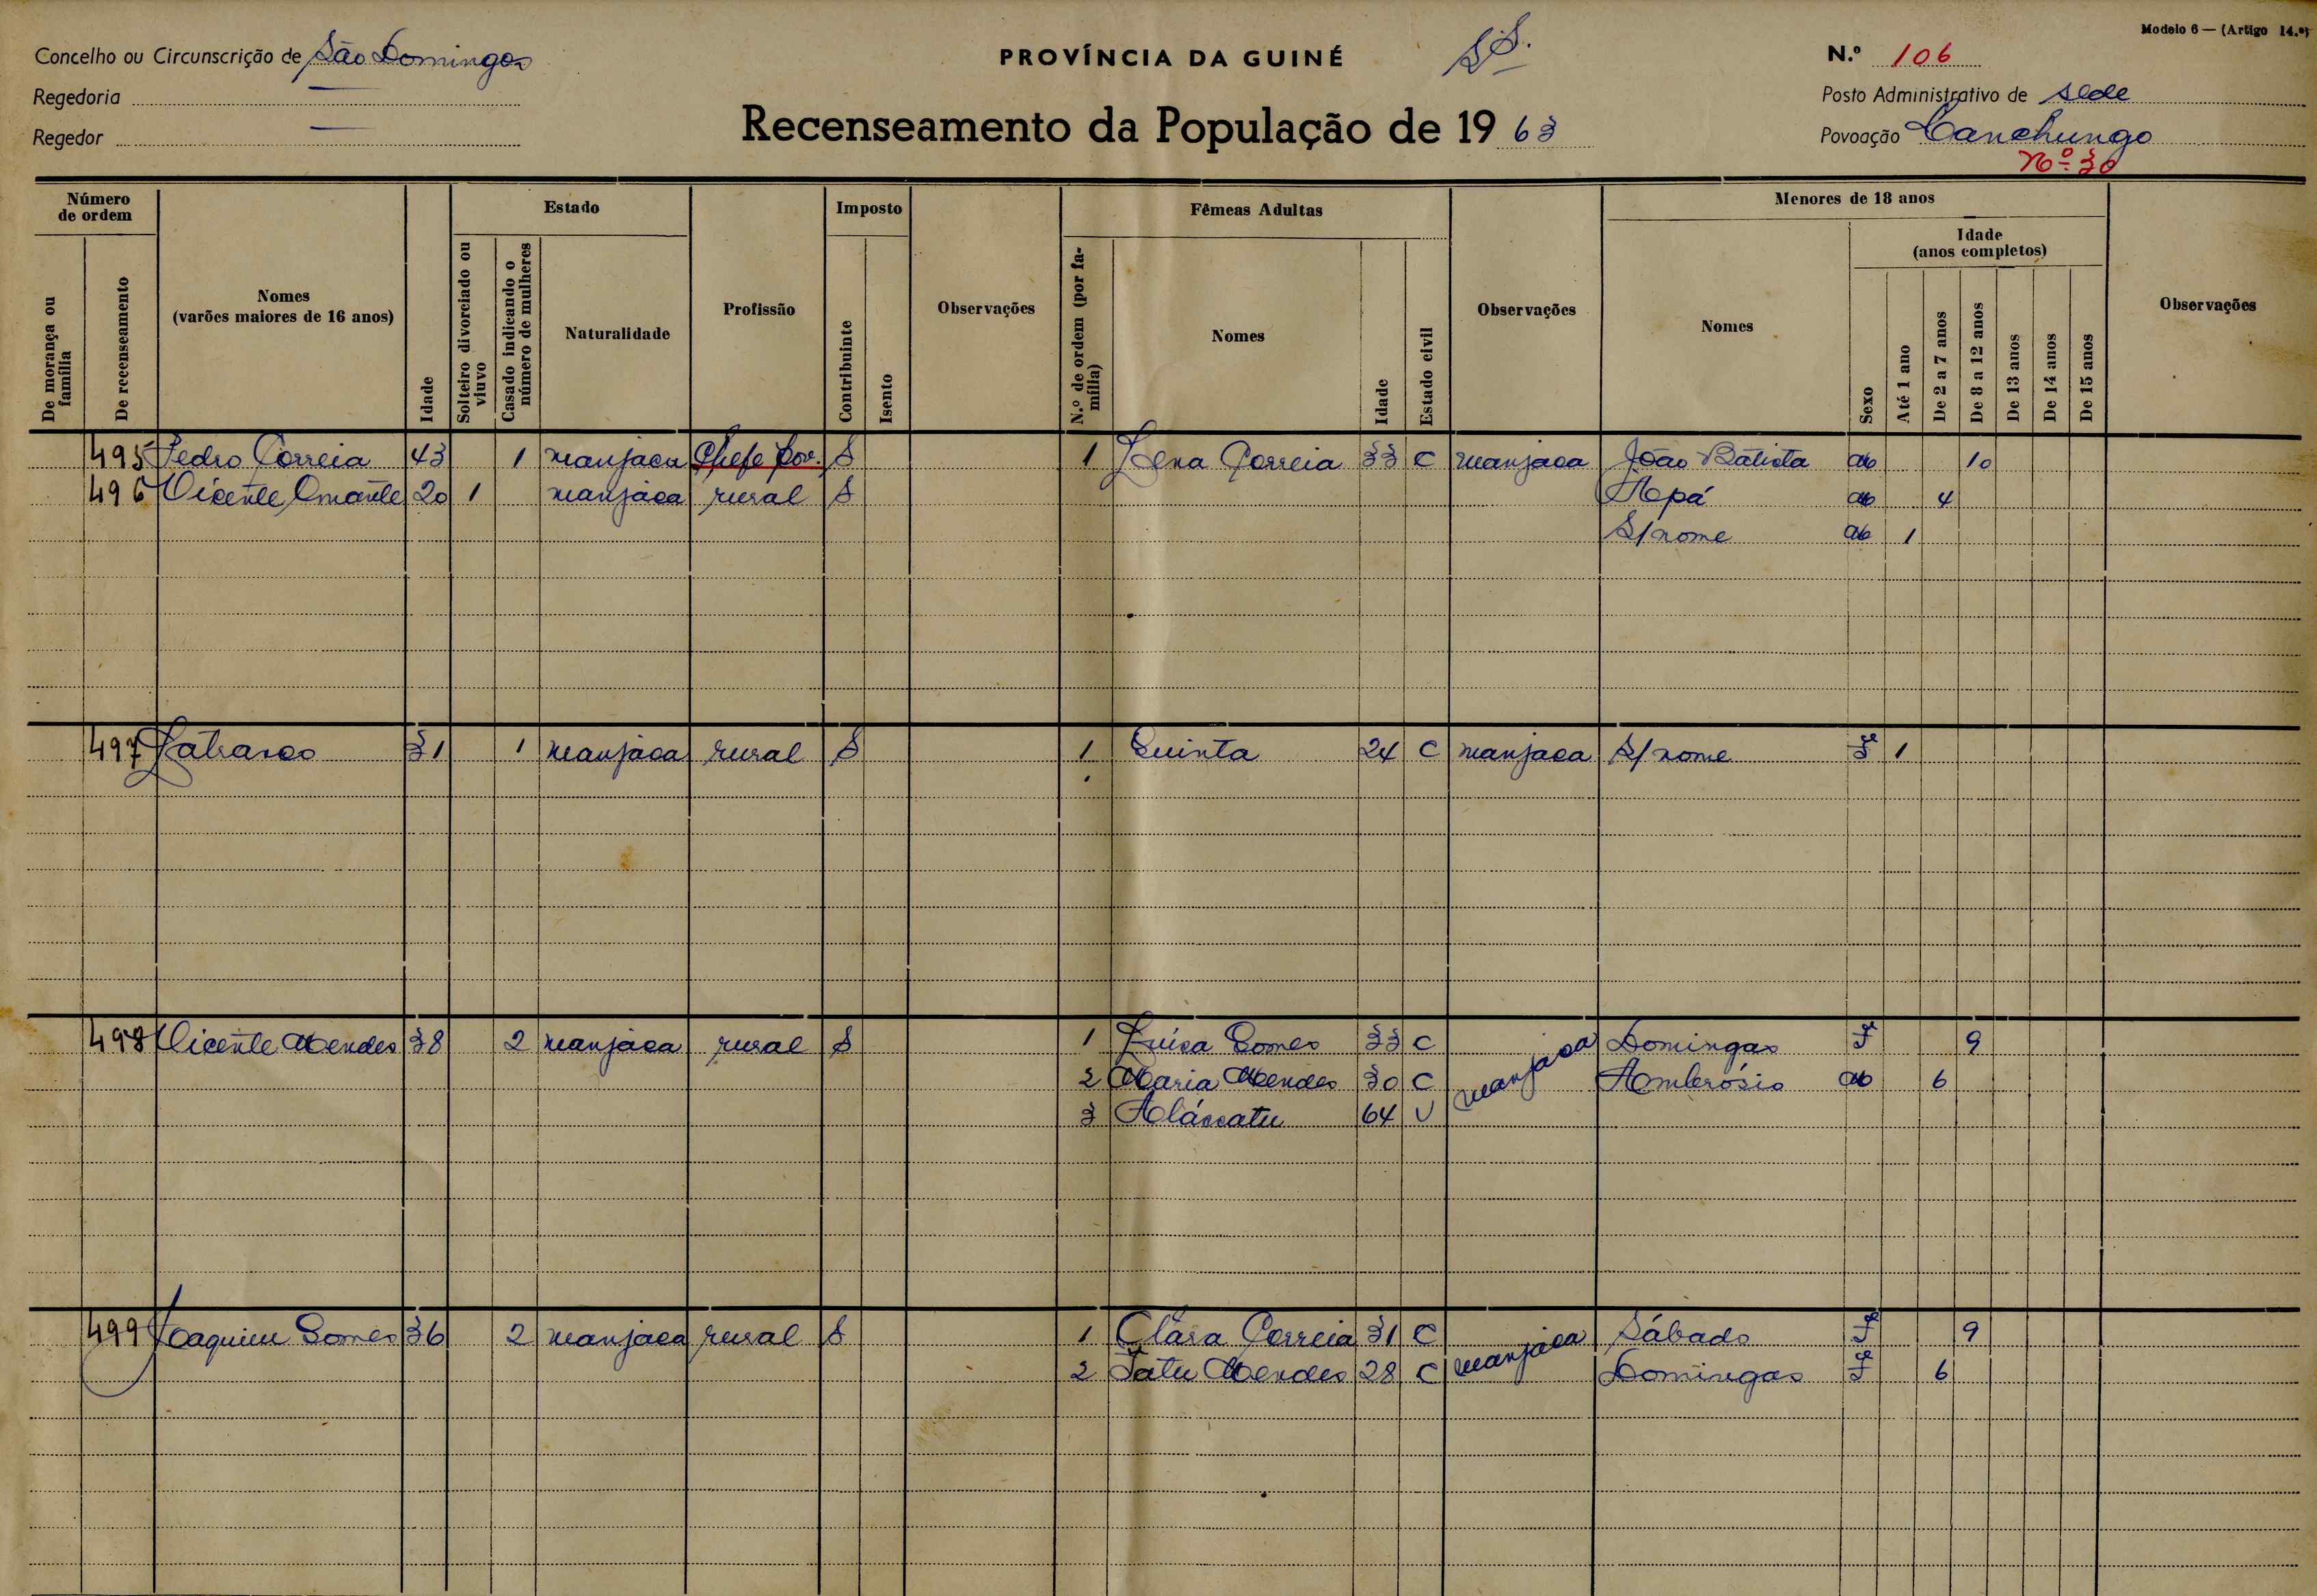 Modelo 6 — (Artigo 14.º)
Concelho ou Circunscrição de São Domingos
PROVÍNCIA DA GUINÉ
N.º 106
Regedoria —
Posto Administrativo de Sede
Regedor —
Recenseamento da População de 1963
Povoação Canchungo
Nº 30
Número de ordem
Estado
Imposto
Fêmeas Adultas
Menores de 18 anos
Idade (anos completos)
De morança ou família
De recenseamento
Nomes (varões maiores de 16 anos)
Idade
Solteiro divorciado ou viuvo
Casado indicando o número de mulheres
Naturalidade
Profissão
Contribuinte
Isento
Observações
N.º de ordem (por família)
Nomes
Idade
Estado civil
Observações
Nomes
Sexo
Até 1 ano
De 2 a 7 anos
De 8 a 12 anos
De 13 anos
De 14 anos
De 15 anos
Observações
495 Pedro Correia 43 1 manjaca Chefe Pov. S 1 Lena Correia 33 C manjaca João Batista M 10
496 Vicente 20 1 manjaca rural S Apá M 4
S/nome M 1
497 31 1 manjaca rural S 1 Quinta 24 C manjaca S/nome F 1
498 Vicente Mendes 38 2 manjaca rural S 1 Luísa Gomes 33 C manjaca Domingas F 9
2 Maria Mendes 30 C Ambrósio M 6
3 64 V
499 Joaquim Gomes 36 2 manjaca rural S 1 Clara Correia 31 C manjaca Sábado F 9
2 Fatu Mendes 28 C Domingas F 6